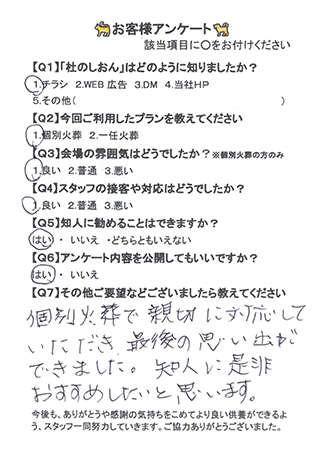 お客様アンケート
該当項目に○をお付けください
【Q1】「杜のしおん」はどのように知りましたか？
1.チラシ 2.WEB広告 3.DM 4.当社HP
5.その他( )
【Q2】今回ご利用したプランを教えてください
1.個別火葬 2.一任火葬
【Q3】会場の雰囲気はどうでしたか？※個別火葬の方のみ
1.良い 2.普通 3.悪い
【Q4】スタッフの接客や対応はどうでしたか？
1.良い 2.普通 3.悪い
【Q5】知人に勧めることはできますか？
はい ・ いいえ ・どちらともいえない
【Q6】アンケート内容を公開してもいいですか？
はい ・ いいえ
【Q7】その他ご要望などございましたら教えてください
個別火葬で親切に対応して
いただき最後の思い出が
できました。知人に是非
おすすめしたいと思います。
今後も、ありがとうや感謝の気持ちをこめてより良い供養ができるよ
う、スタッフ一同努力していきます。ご協力ありがとうございました。